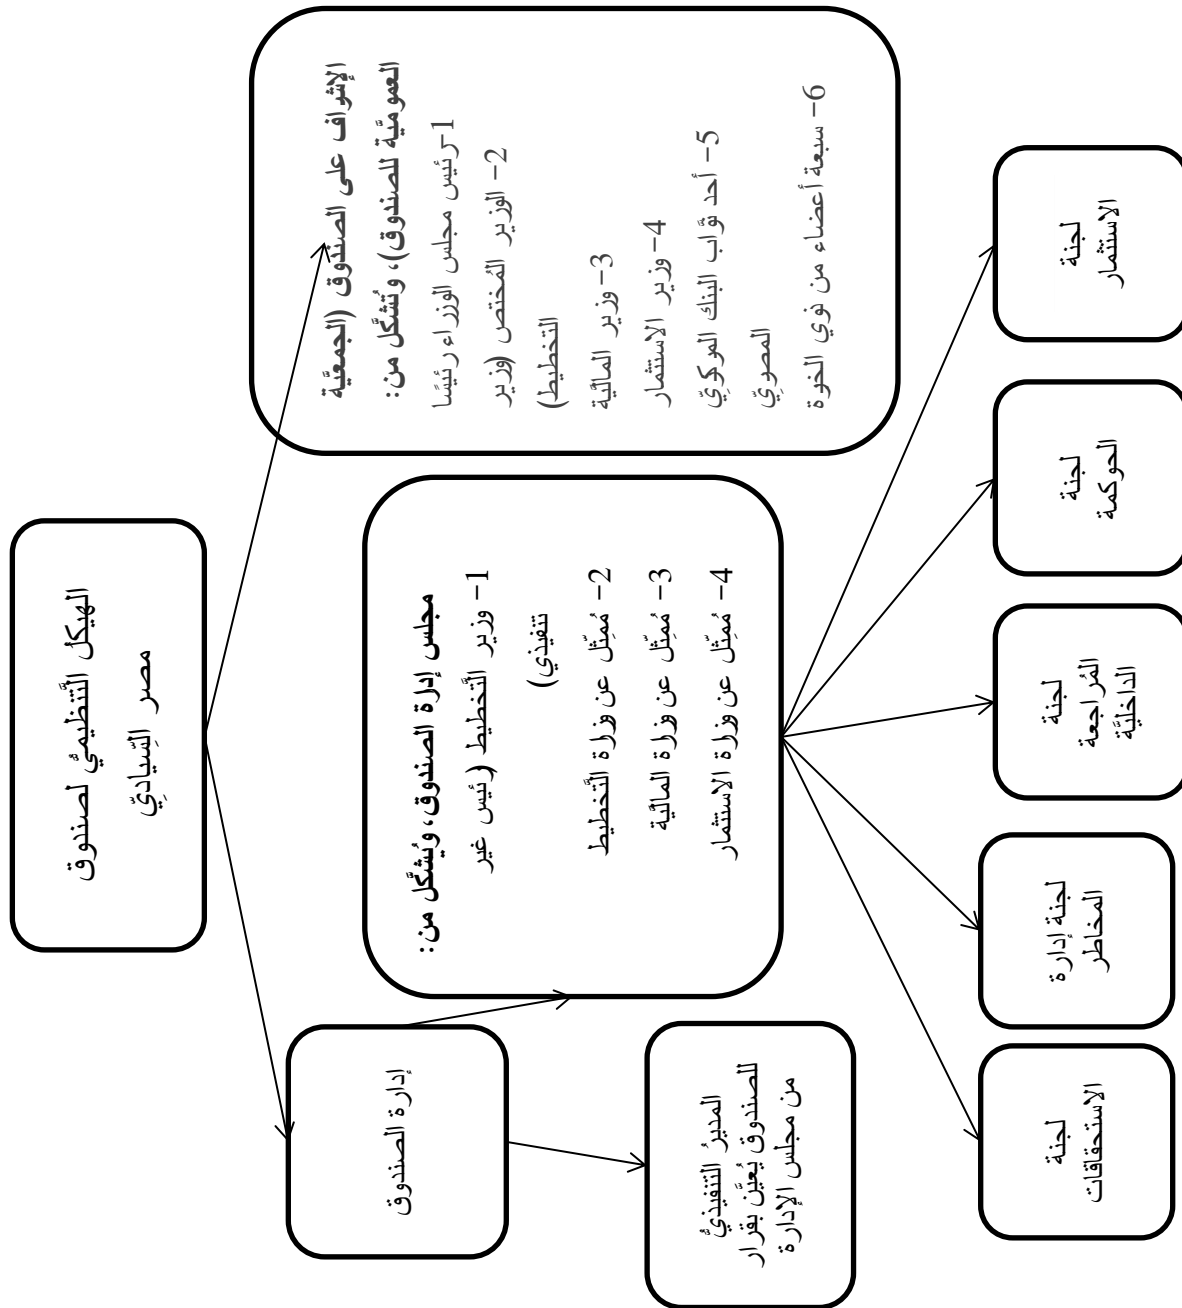 الهيكل التَّنظيميُّ لصندوق
مصر السِّياديِّ
الإشراف على الصندوق (الجمعيَّة
العموميَّة للصندوق)، وتُشكَّل من:
1-رئيس مجلس الوزراء رئيسًا
2- الوزير المُختص (وزير
التخطيط)
3-وزير الماليَّة
4-وزير الاستثمار
5- أحد نوَّاب البنك المركزيِّ
المصريِّ
6- سبعة أعضاء من ذوي الخبرة
إدارة الصندوق
مجلس إدارة الصندوق، ويُشكَّل من:
1- وزير التَّخطيط (رئيس غير
تنفيذي)
2- مُمثِّل عن وزارة التَّخطيط
3- مُمثِّل عن وزارة الماليَّة
4- مُمثِّل عن وزارة الاستثمار
المديرُ التنفيذيُّ
للصندوق يُعيَّن بقرار
من مجلس الإدارة
لجنة
الاستثمار
لجنة
الحوكمة
لجنة
المُراجعة
الداخليَّة
لجنة إدارة
المخاطر
لجنة
الاستحقاقات